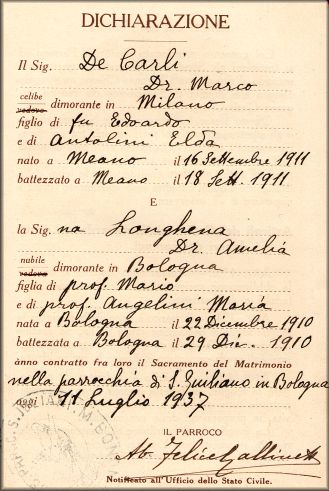 DICHIARAZIONE
Il Sig. De Carli
Dr. Marco
celibe
vedovo dimorante in Milano
figlio di fu Edoardo
e di Antolini Elda
nato a Meano il 16 Settembre 1911
battezzato a Meano il 18 Sett. 1911
E
la Sig.na Longhena
Dr. Amelia
nubile
vedova dimorante in Bologna
figlia di prof. Mario
e di prof. Angelini Maria
nata a Bologna il 22 Dicembre 1910
battezzata a Bologna il 29 Dic. 1910
ànno contratto fra loro il Sacramento del Matrimonio
nella parrocchia di S. Giuliano in Bologna
oggi 11 Luglio 1937
IL PARROCO
Ab. Felice Gallinetti
Notificato all'Ufficio dello Stato Civile.